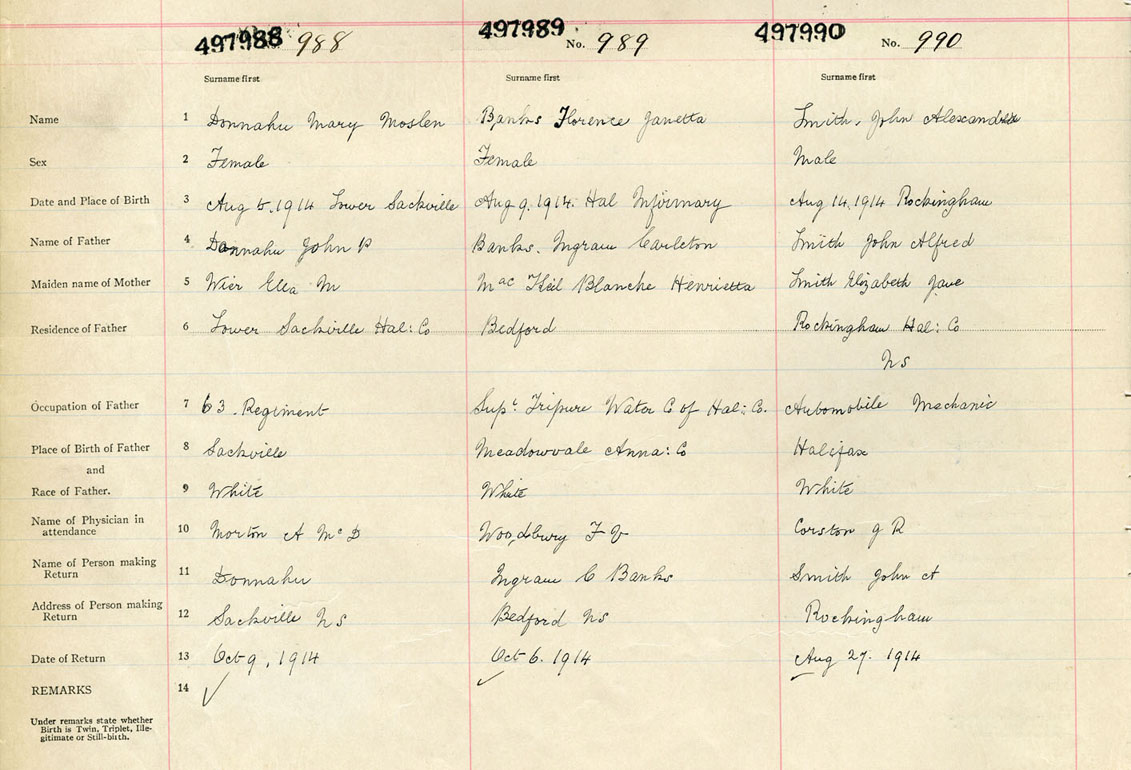 497988 988 497989 No. 989 497990 No. 990
Surname first Surname first Surname first
Name 1 Donnahu Mary Moslen Banks Florence Janetta Smith, John Alexander
Sex 2 Female Female Male
Date and Place of Birth 3 Aug 5. 1914 Lower Sackville Aug 9. 1914. Hal Infirmary Aug 14. 1914 Rockingham
Name of Father 4 Donnahu John P Banks. Ingram Carleton Smith John Alfred
Maiden name of Mother 5 Wier Ella M Mac Keil Blanche Henrietta Smith Elizabeth Jane
Residence of Father 6 Lower Sackville Hal: Co Bedford Rockingham Hal: Co
NS
Occupation of Father 7 63. Regiment Supt. Water C of Hal: Co. Automobile Mechanic
Place of Birth of Father 8 Sackville Meadowvale Anna: Co Halifax
and
Race of Father. 9 White White White
Name of Physician in
attendance 10 Morton A McD Woodbury F V Corston J R
Name of Person making
Return 11 Donnahu Ingram C Banks Smith John A
Address of Person making
Return 12 Sackville NS Bedford NS Rockingham
Date of Return 13 Oct 9, 1914 Oct 6. 1914 Aug 27. 1914
REMARKS 14
Under remarks state whether
Birth is Twin, Triplet, Ille-
gitimate or Still-birth.